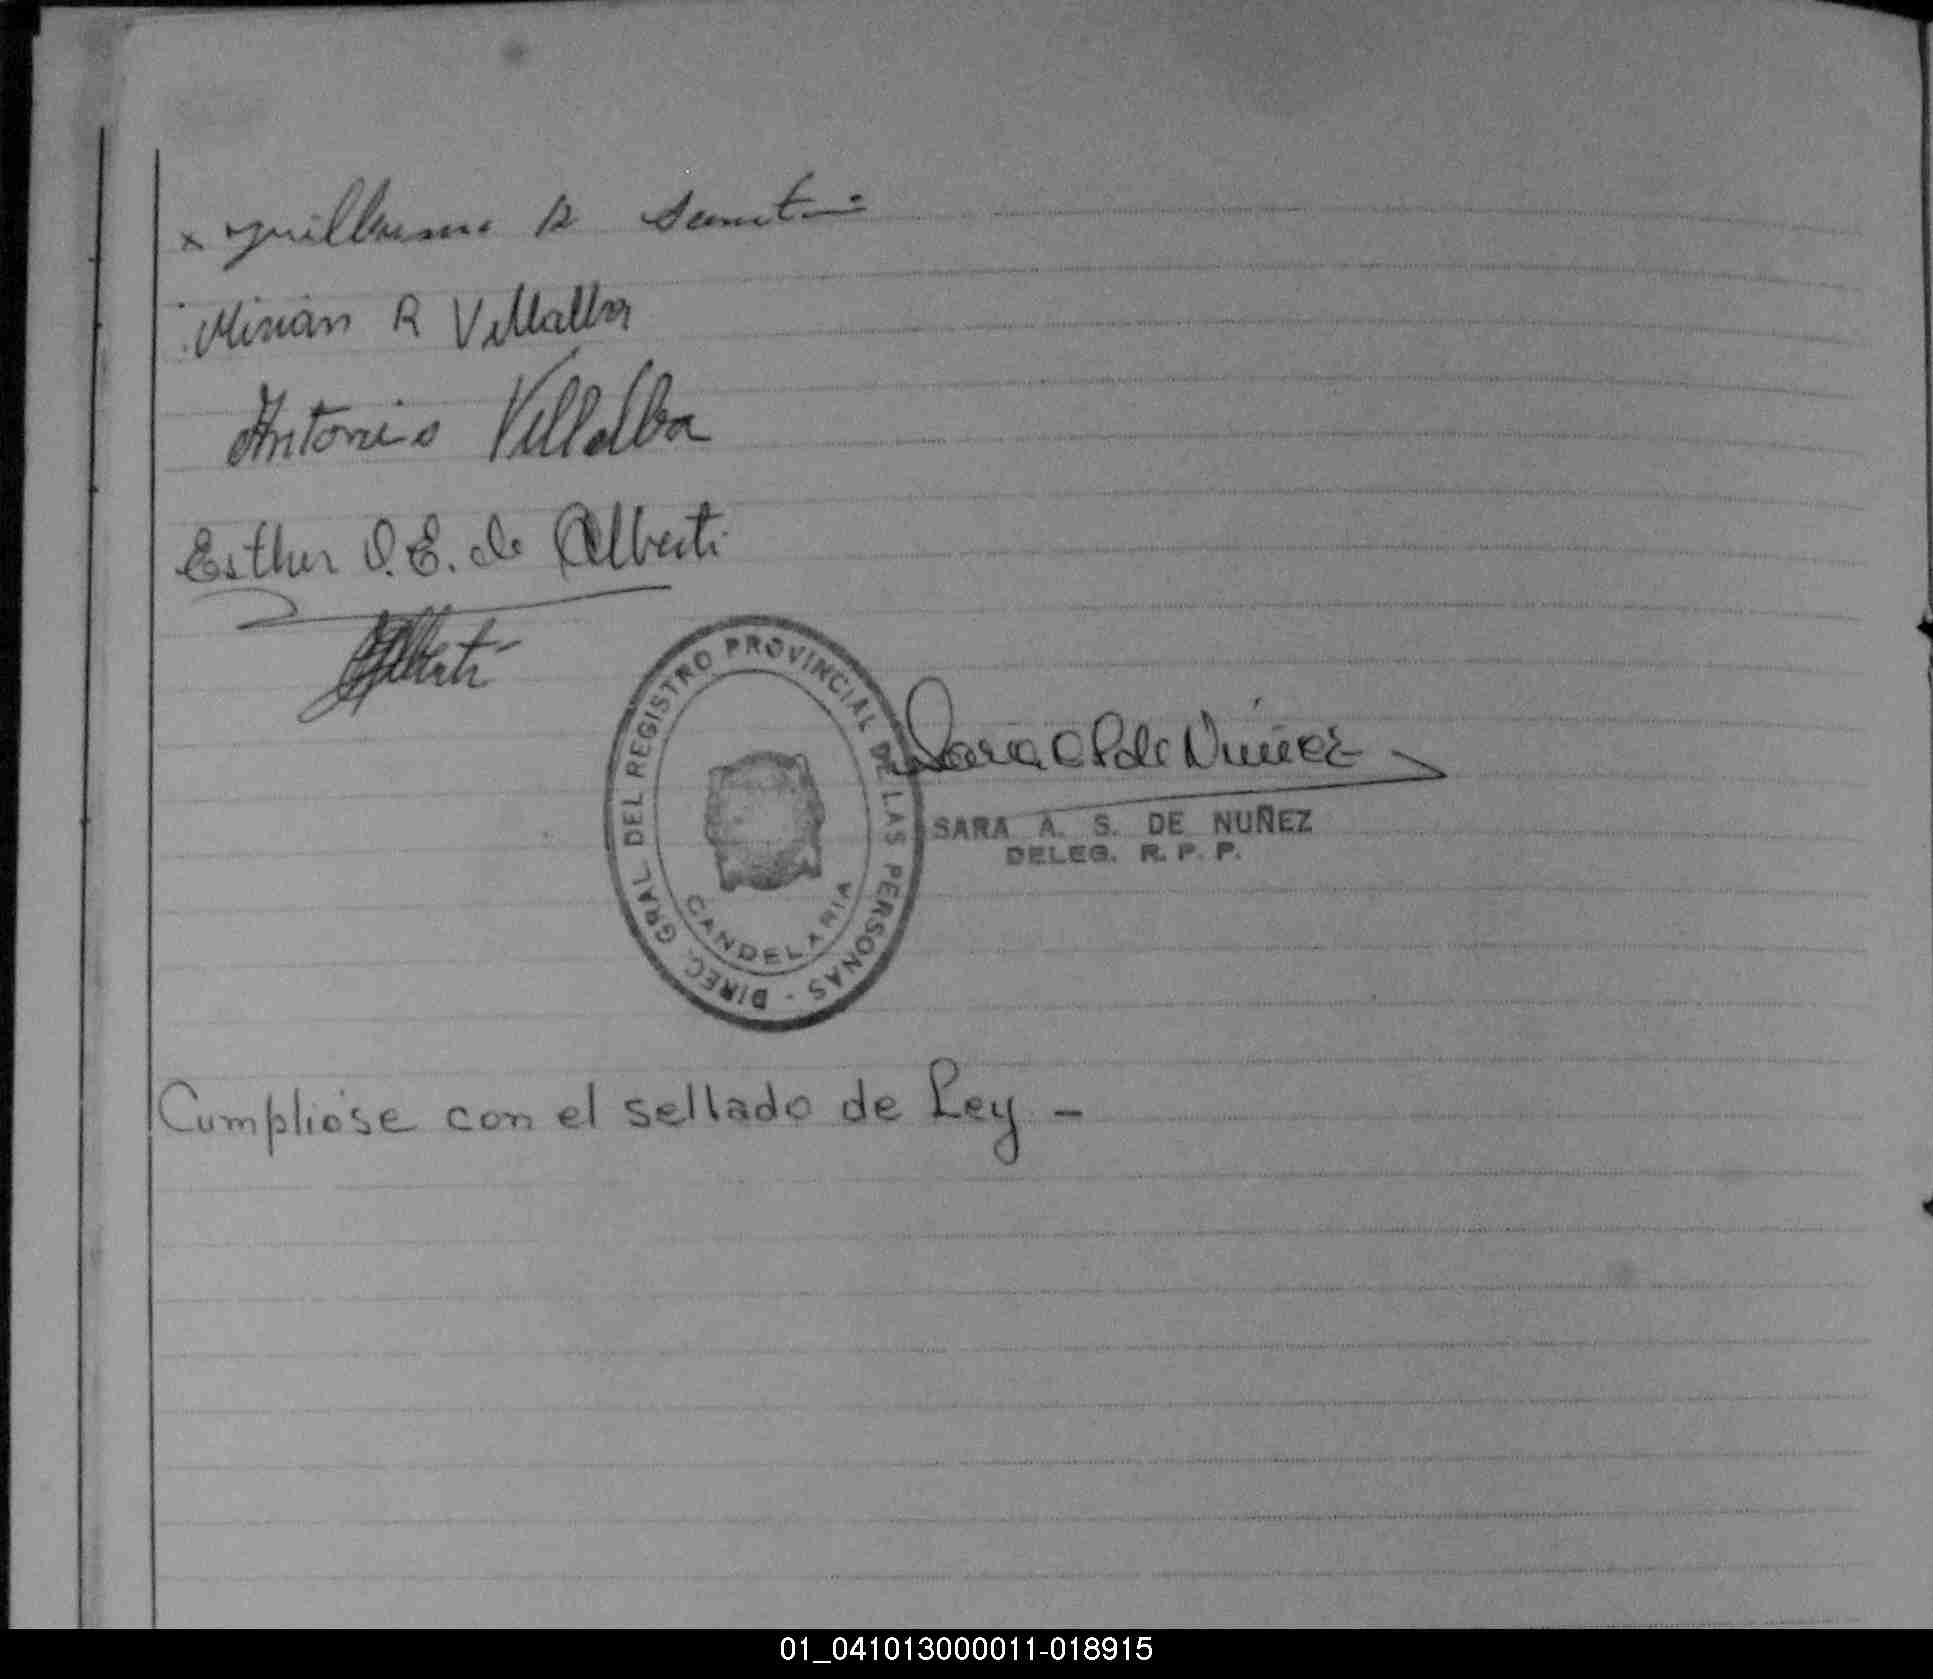 x Guillermo R
Mirian R Villalba
Antonio Villalba
Esther O. E. de Alberti
Alberti
DIREC. GRAL DEL REGISTRO PROVINCIAL DE LAS PERSONAS -
CANDELARIA
Sara de Nuñez
SARA A. S. DE NUÑEZ
DELEG. R. P. P.
Cumplióse con el sellado de Ley -
01_041013000011-018915